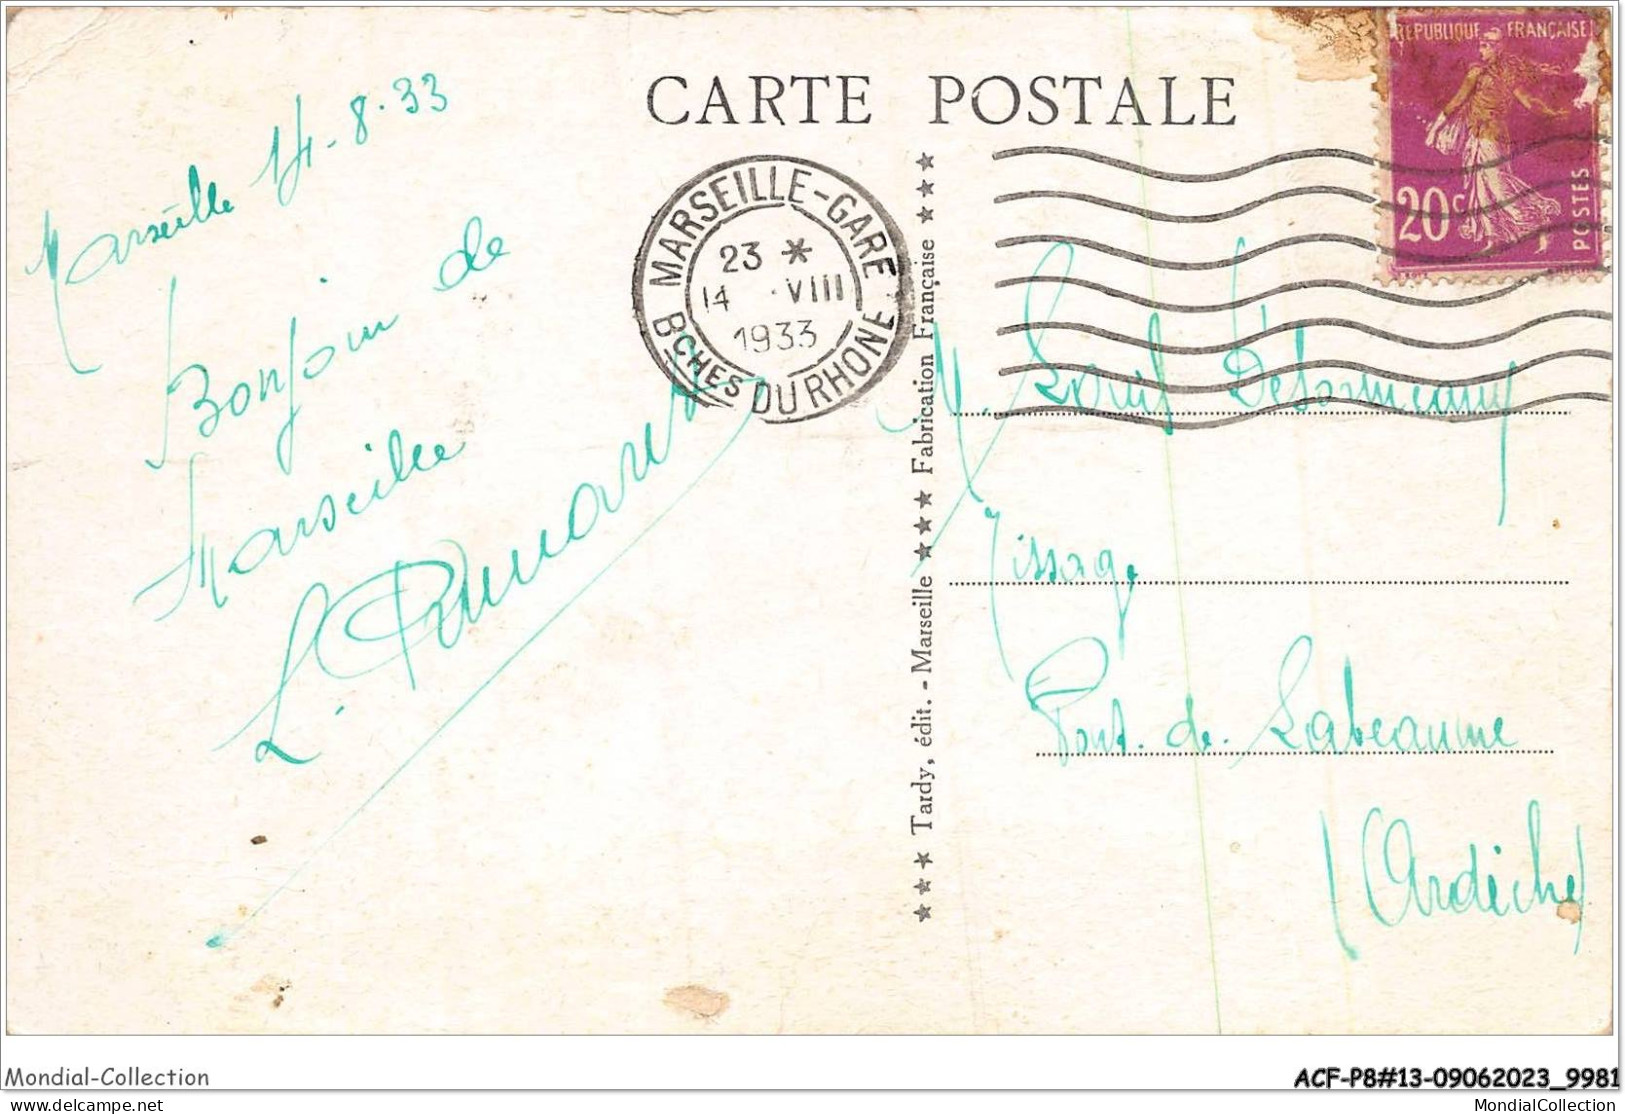 CARTE POSTALE
REPUBLIQUE FRANÇAISE
20c
POSTES
MARSEILLE-GARE
23 *
14 · VIII
1933
BCHES DU RHONE
Marseille 14-8-33
Bonjour de
Marseille
L.
★★★ Tardy, édit. - Marseille ★★★ Fabrication Française ★★★
M. Louis
Pont. de. Labeaume
(Ardèche)
Mondial-Collection
ACF-P8#13-09062023_9981
delcampe.net
MondialCollection